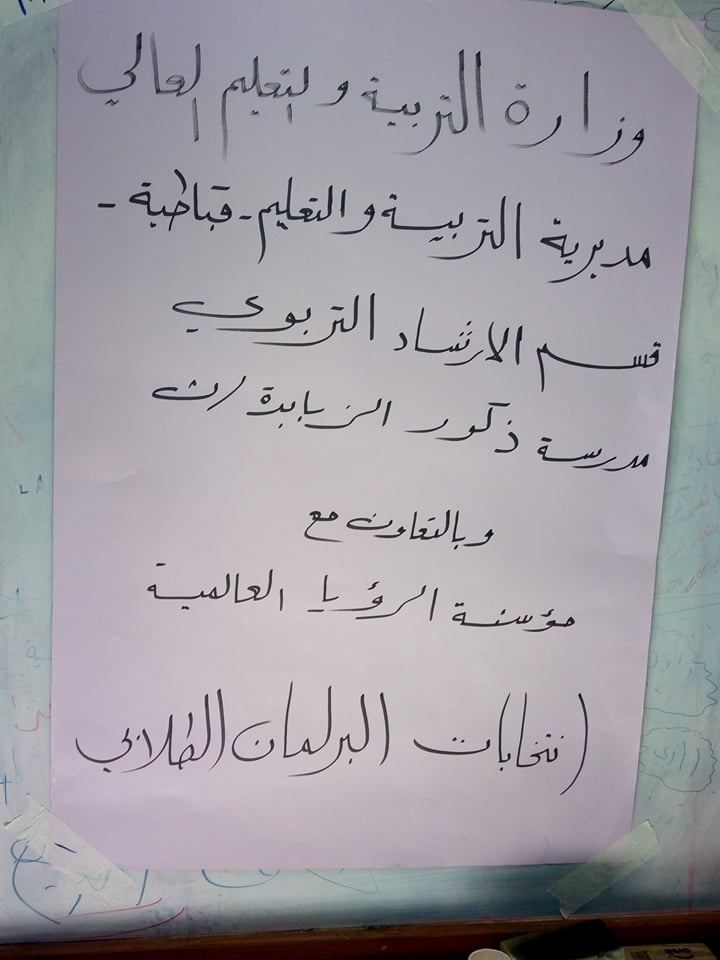 وزارة التربية والتعليم العالي
مديرية التربية والتعليم - قباطية -
قسم الارشاد التربوي
مدرسة ذكور الزبابدة /ث
وبالتعاون مع
مؤسسة الرؤيا العالمية
انتخابات البرلمان الطلابي